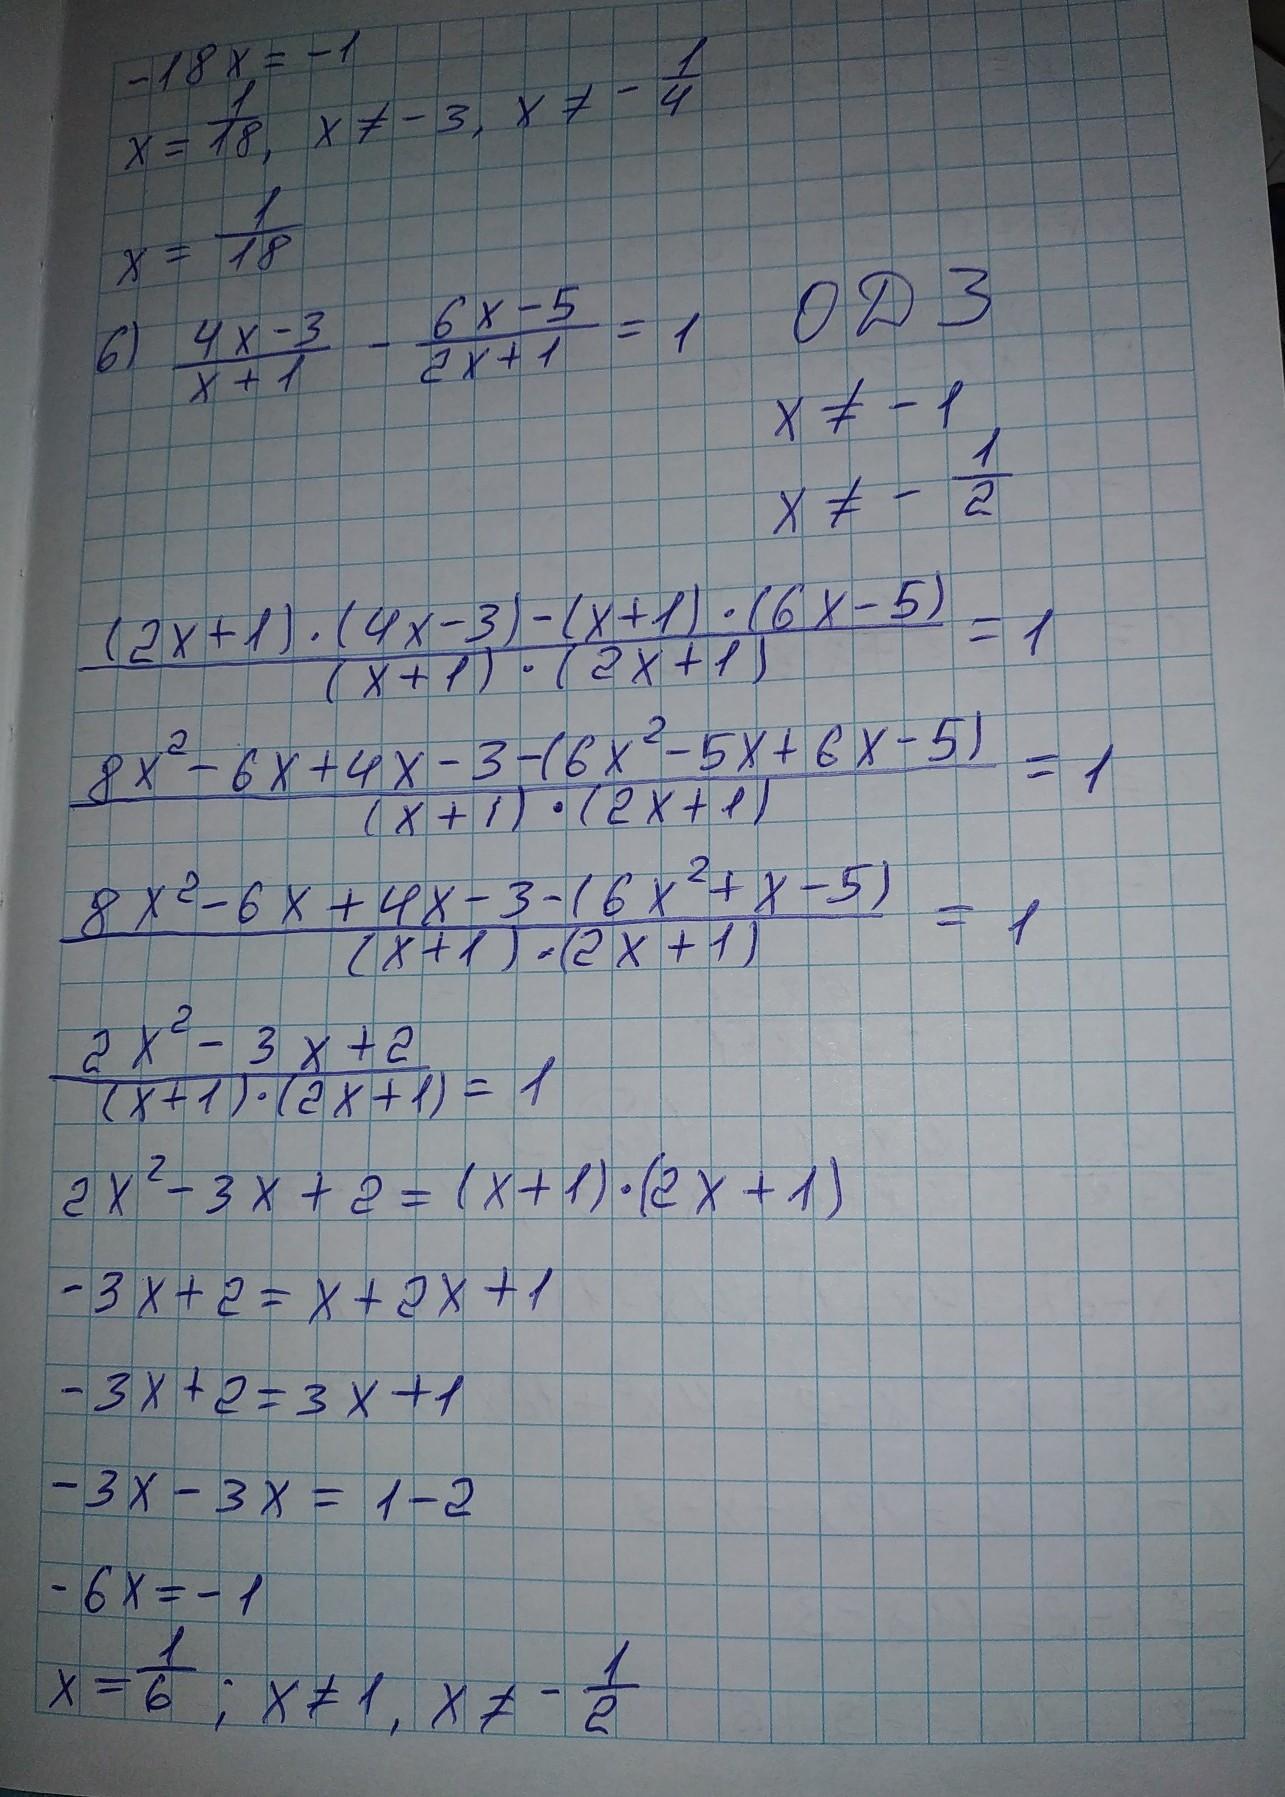 -18x = -1
x = 1/18, x ≠ -3, x ≠ - 1/4
x = 1/18
б) (4x-3)/(x+1) - (6x-5)/(2x+1) = 1
ОДЗ
x ≠ -1
x ≠ - 1/2
((2x+1)·(4x-3)-(x+1)·(6x-5))/((x+1)·(2x+1)) = 1
(8x²-6x+4x-3-(6x²-5x+6x-5))/((x+1)·(2x+1)) = 1
(8x²-6x+4x-3-(6x²+x-5))/((x+1)·(2x+1)) = 1
(2x²-3x+2)/((x+1)·(2x+1)) = 1
2x²-3x+2=(x+1)·(2x+1)
-3x+2=x+2x+1
-3x+2=3x+1
-3x-3x=1-2
-6x=-1
x = 1/6; x≠1, x ≠ - 1/2